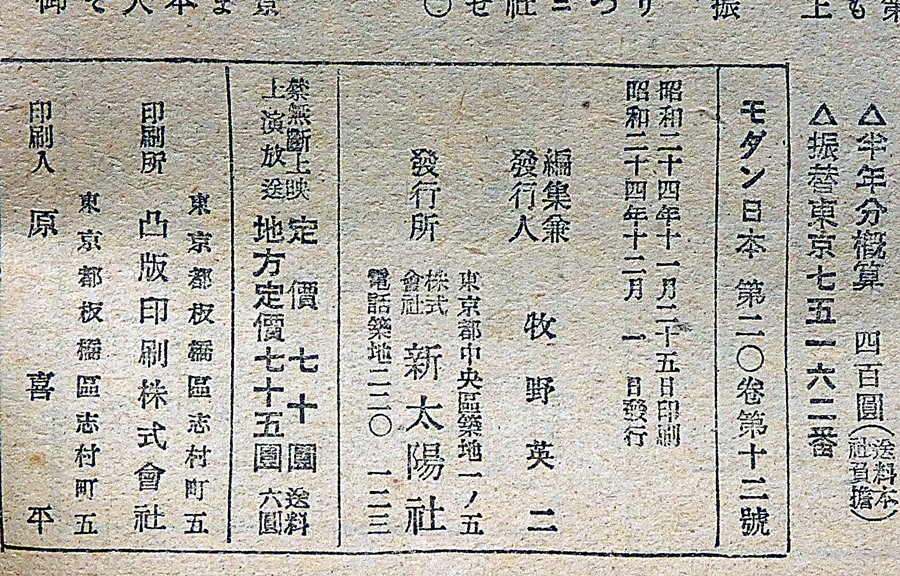 △半年分概算 四百圓(送料本社負擔)
△振替東京七五一六二番
モダン日本 第二〇巻第十二號
昭和二十四年十一月二十五日印刷
昭和二十四年十二月 一 日發行
編集兼
發行人 牧野英二
東京都中央區築地一ノ五
發行所 株式會社 新太陽社
電話築地二二〇 一二三
禁無斷上映
上演放送
定 價 七十圓 送料
地方定價七十五圓 六圓
東京都板橋區志村町五
印刷所 凸版印刷株式會社
東京都板橋區志村町五
印刷人 原 喜 平